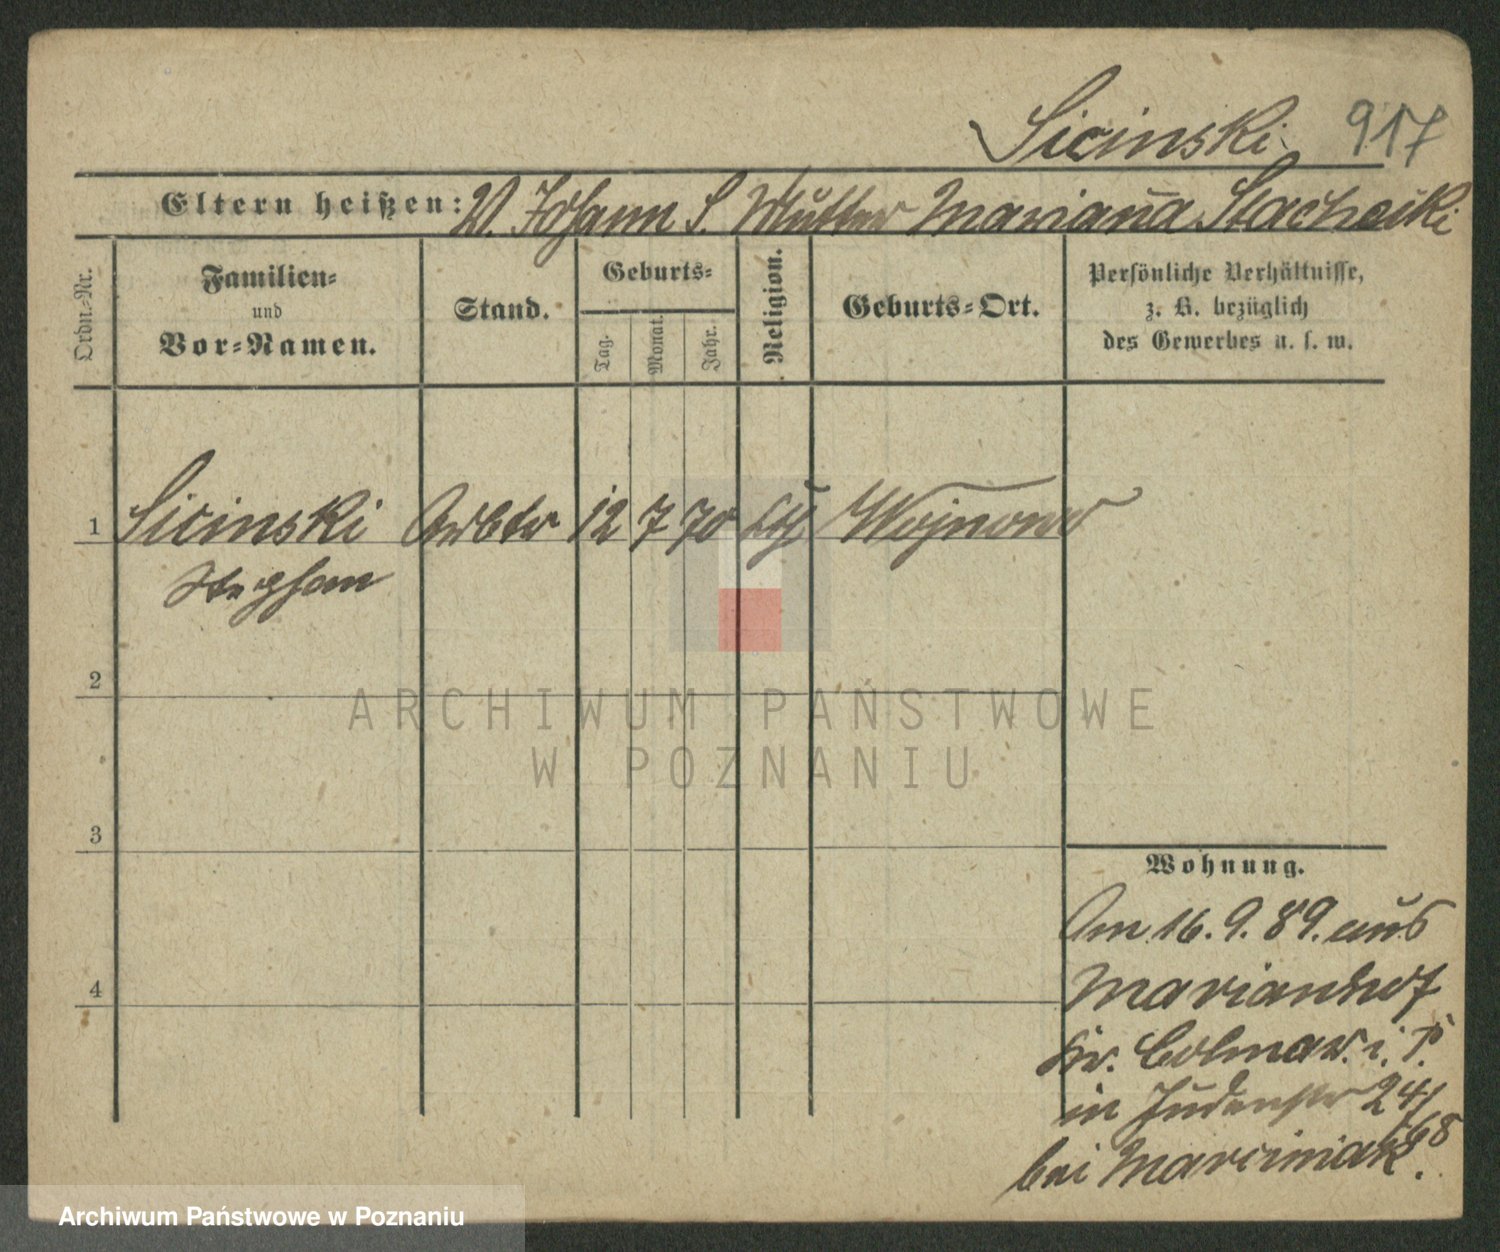 Sicinski 917
Eltern heißen: V. Johann S. Mutter Mariana
Ordn.-Nr.
Familien-
und
Vor-Namen.
Stand.
Geburts-
Tag.
Monat.
Jahr.
Religion.
Geburts-Ort.
Persönliche Verhältnisse,
z. B. bezüglich
des Gewerbes u. s. w.
1 Sicinski Arbtr 12 7 70 kth Wojnowo
Stephan
2
3
4
Wohnung.
Am 16. 9. 89. aus
Marianhof
Kr. Colmar i. P.
in Judenstr 24/
68
bei Marciniak.
ARCHIWUM PAŃSTWOWE
W POZNANIU
Archiwum Państwowe w Poznaniu